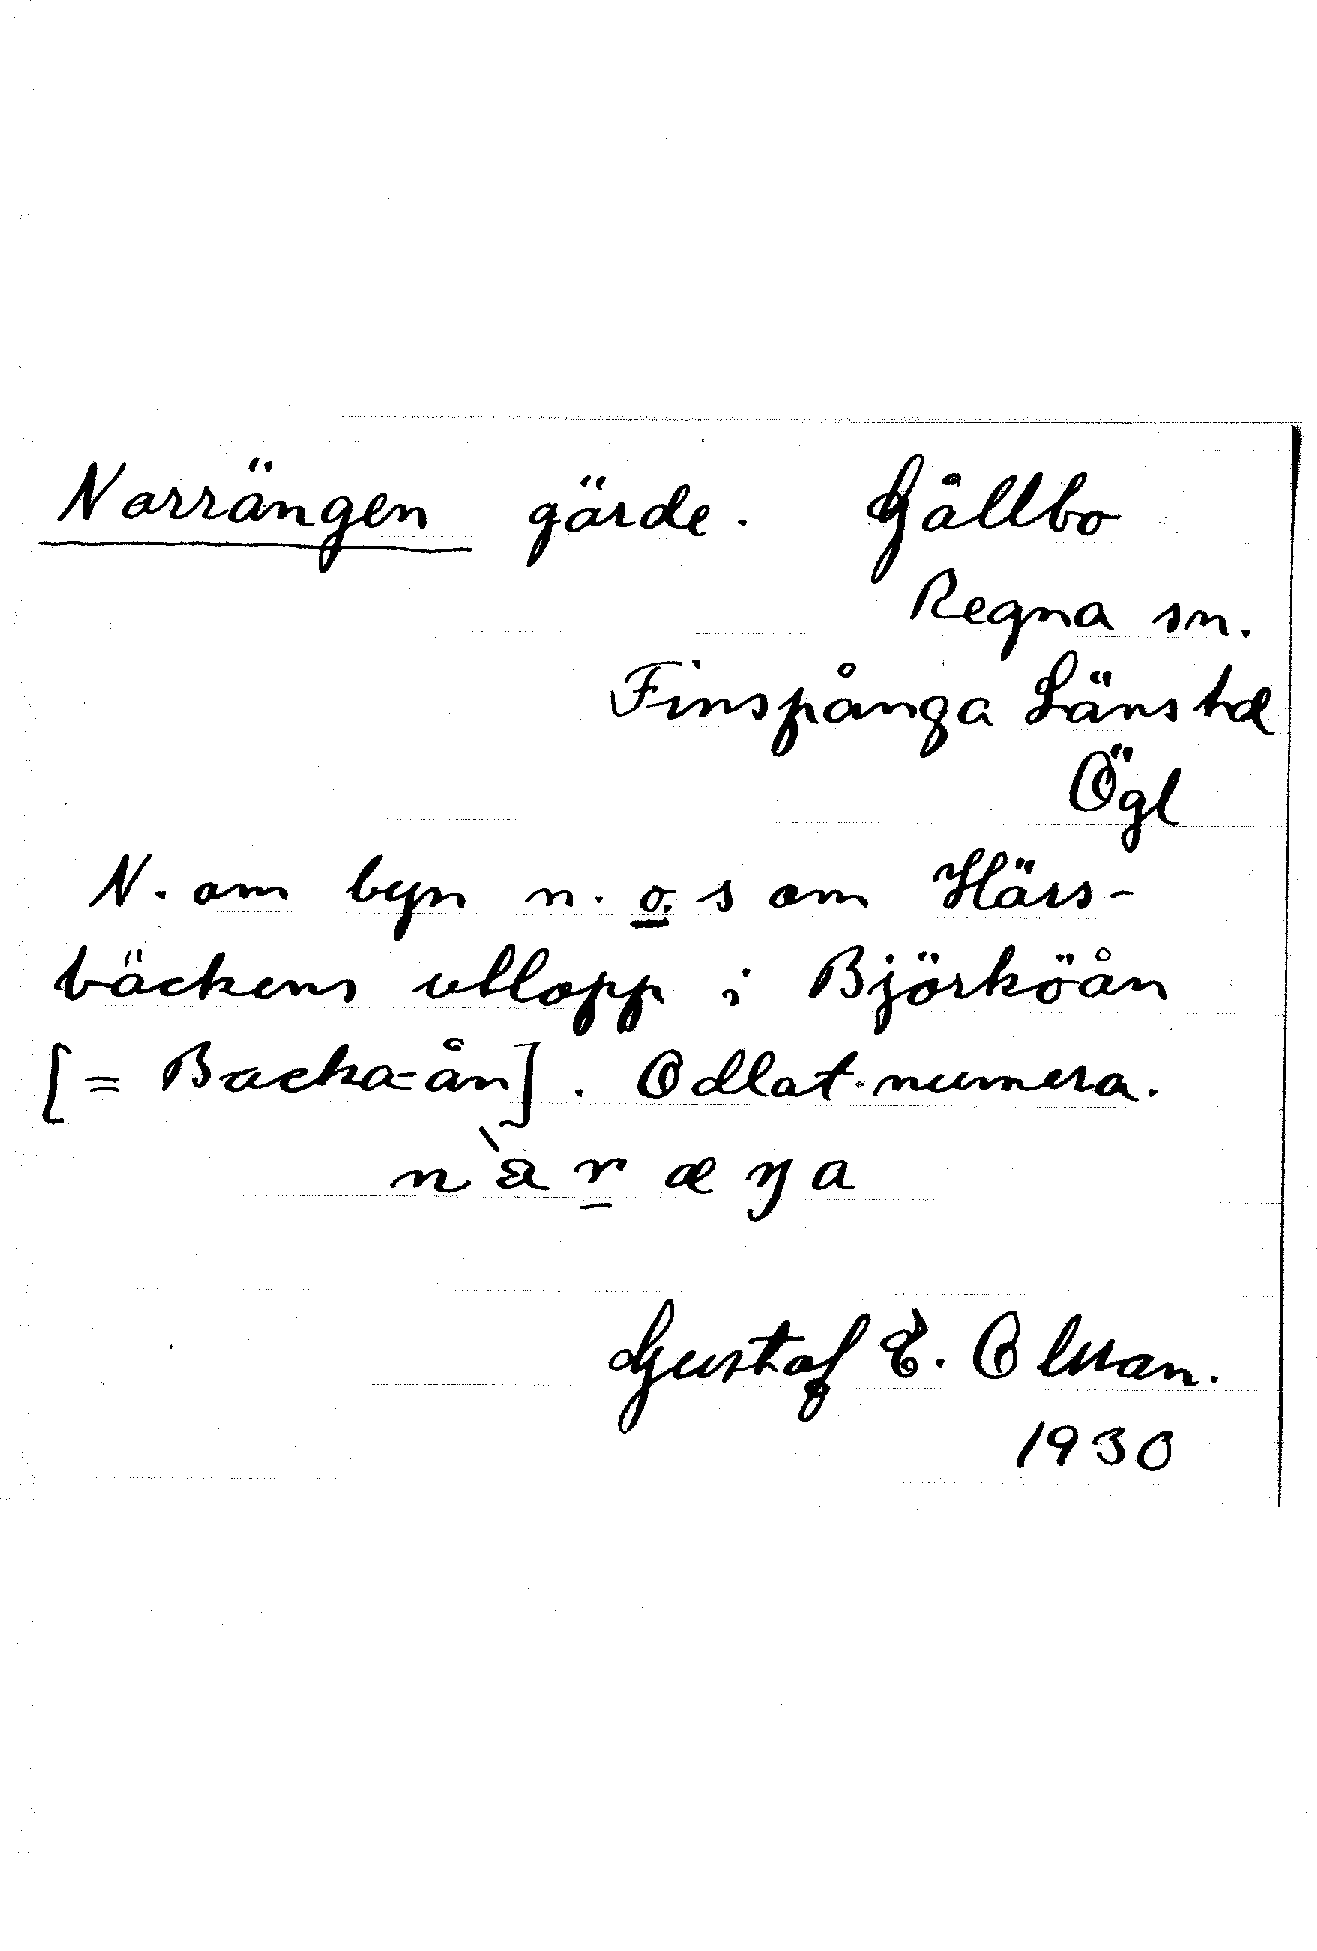 Norrängen gärde. Gållbo
Regna sn.
Finspånga Länshd
Ögl
N. om byn n. o. s om Härs-
bäckens utlopp i Björköån
[= Backa-ån]. Odlat numera.
Gustaf E. Olsson.
1930